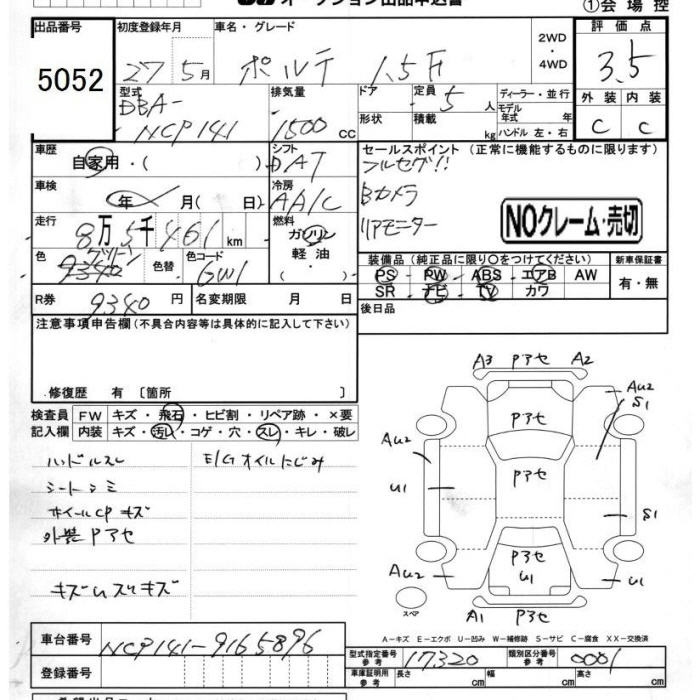 オークション出品申込書
①会場控
出品番号
5052
初度登録年月
27 5月
車名・グレード
ポルテ 1.5F
2WD
・
4WD
評価点
3.5
外装 内装
C C
型式
DBA-
NCP141
排気量
1500 cc
ドア
形状
定員 5 人
積載 kg
ディーラー・並行
モデル年式 年
ハンドル 左・右
車歴
自家用・( )
シフト
DAT
車検
年 月( 日)
冷房
AA/C
走行
8万5千461km
燃料
ガソリン
軽油
・( )
色
グリーン
9340
色替
色コード
6W1
R券
9340円
名変期限 月 日
セールスポイント (正常に機能するものに限ります)
フルセグ!!
Bカメラ
リアモニター
NOクレーム・売切
装備品 (純正品に限り○をつけてください)
PS・PW・ABS・エアB AW
SR・ナビ・TV・カワ
新車保証書
有・無
後日品
注意事項申告欄(不具合内容等は具体的に記入して下さい)
修復歴 有 〔箇所 〕
検査員記入欄
FW キズ・飛石・ヒビ割・リペア跡・×要
内装 キズ・汚レ・コゲ・穴・スレ・キレ・破レ
ハンドルスレ
E/Gオイルにじみ
シートシミ
ホイールCPキズ
外装Pアセ
キズUスリキズ
A3 Pアセ A2
AU2
S1
Pアセ
AU2
Pアセ
U1
S1
Pアセ
AU2
U1
U1
スペア
A1 Pアセ
A−キズ E−エクボ U−凹み W−補修跡 S−サビ C−腐食 XX−交換済
車台番号
NCP141-9165896
登録番号
型式指定番号
参考
17320
類別区分番号
参考
0001
車庫証明用
参考
長さ cm
幅 cm
高さ cm